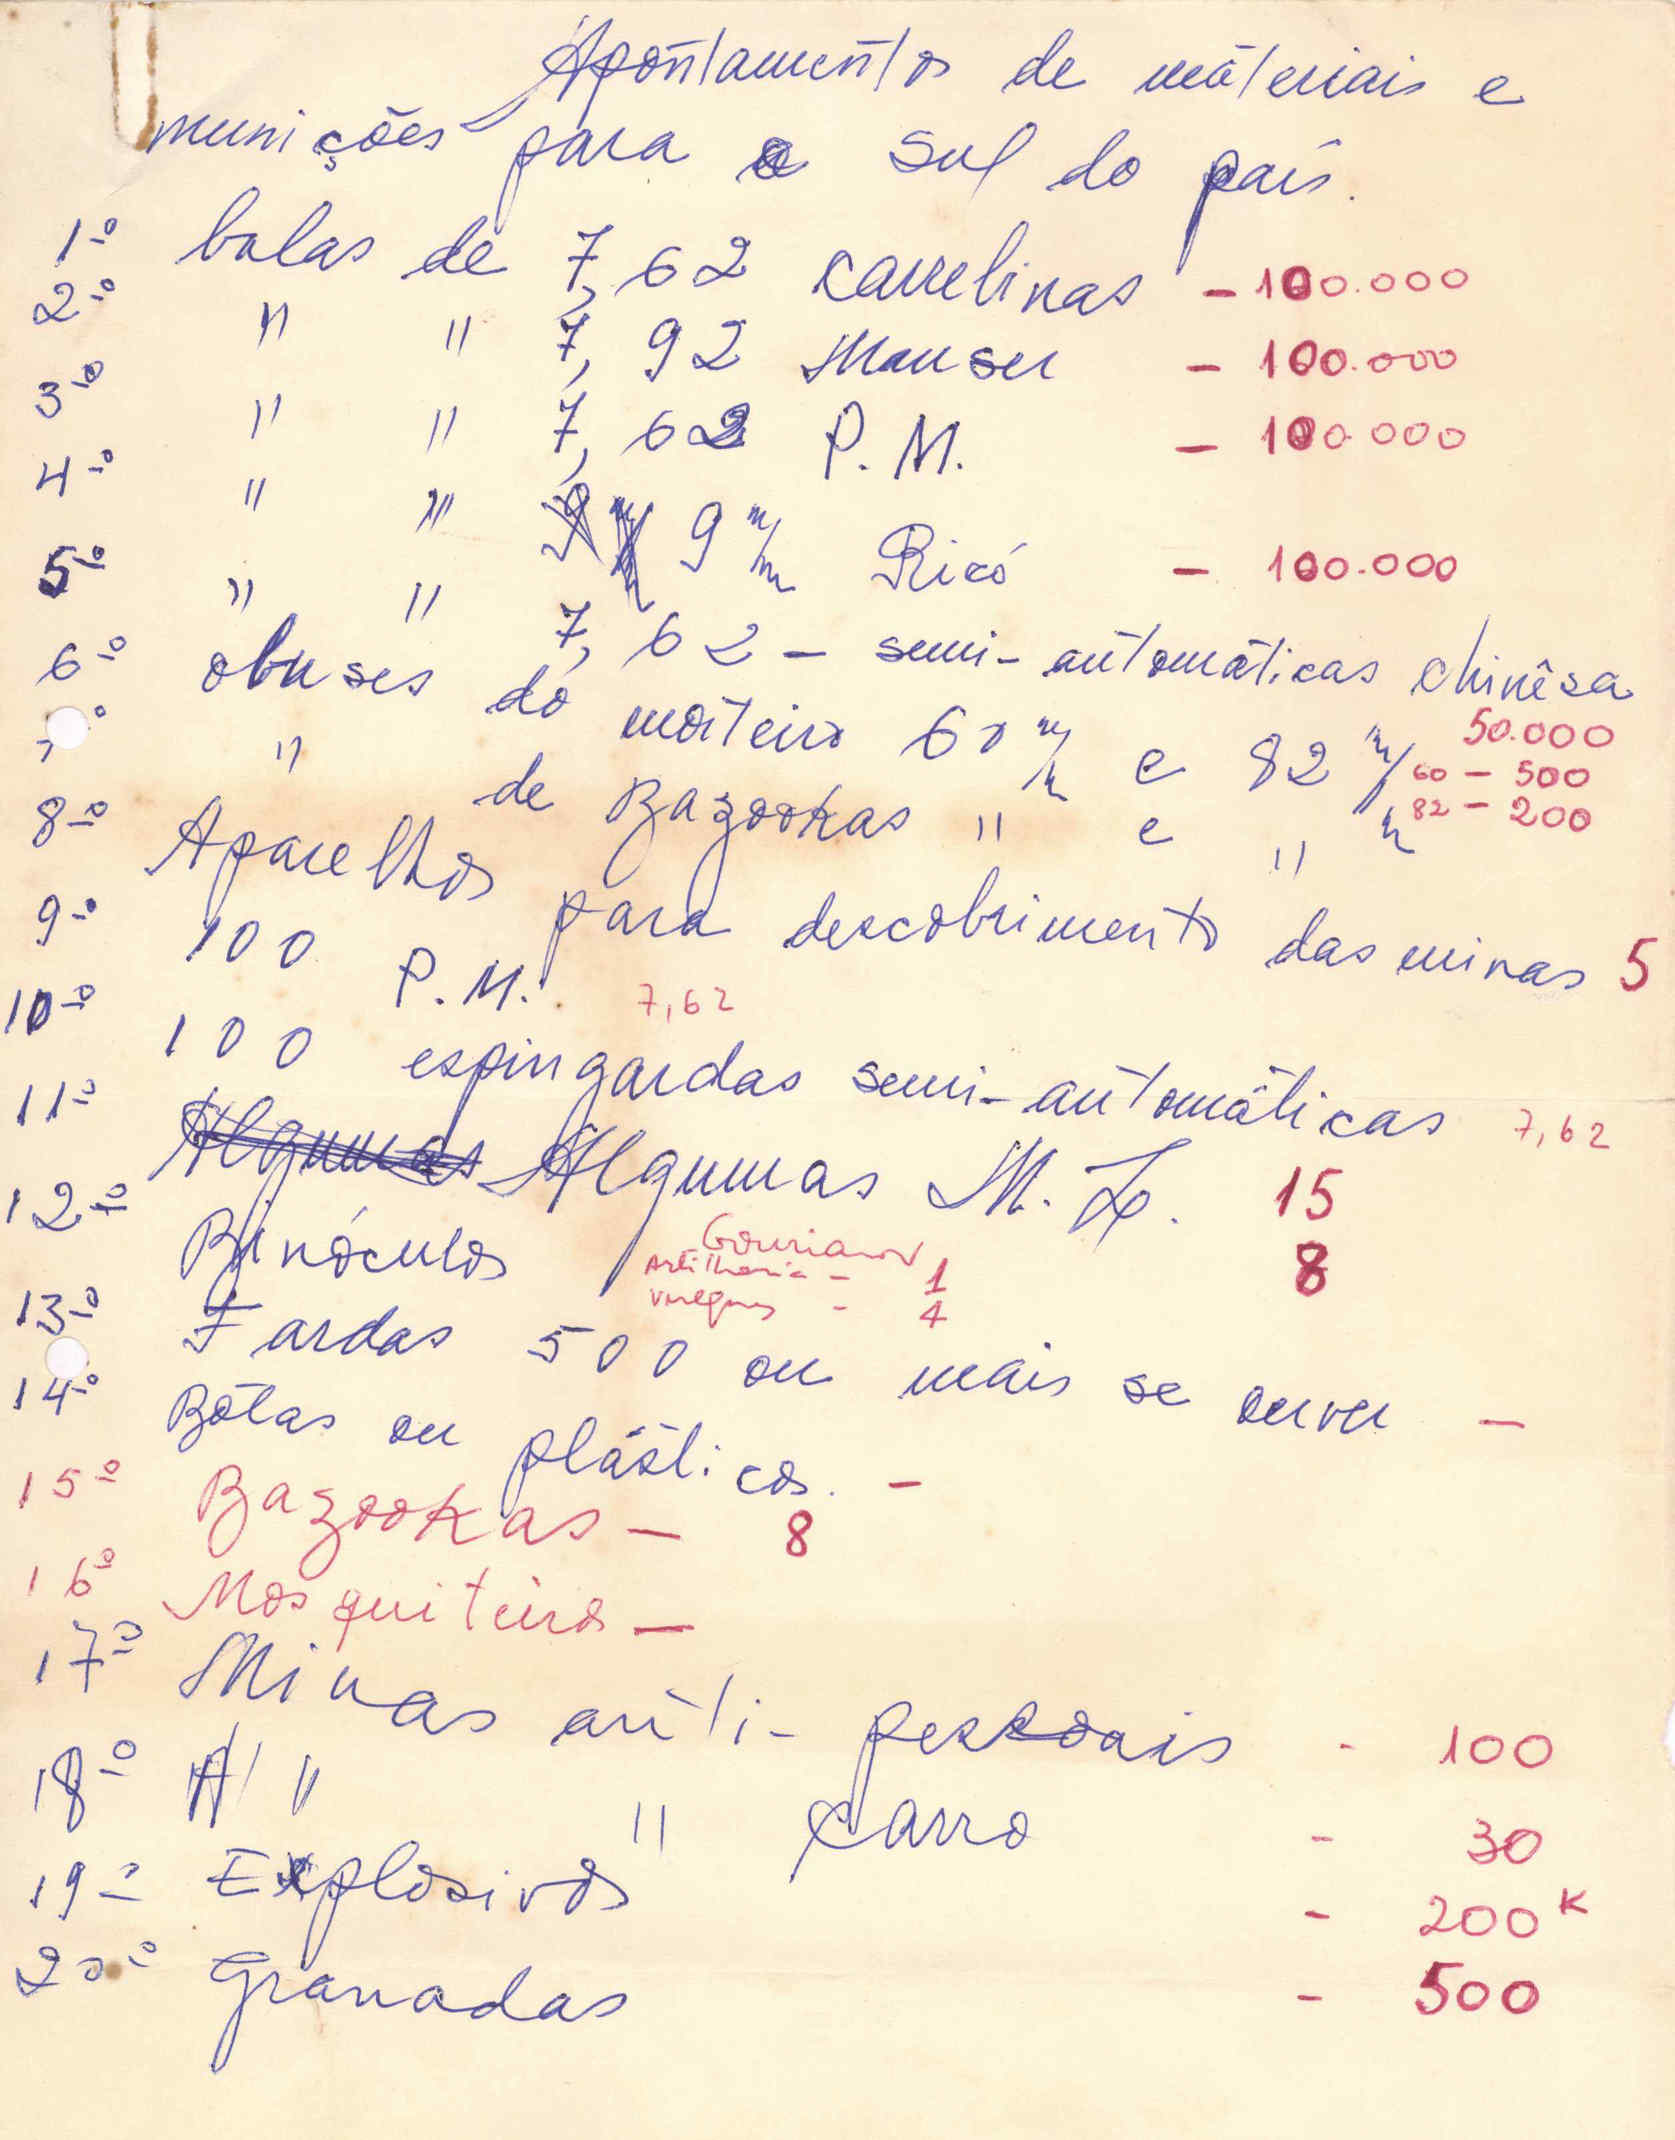 Apontamentos de materiais e
munições para o sul do país.
1º balas de 7,62 carrelinas - 100.000
2º " " 7,92 Mauser - 100.000
3º " " 7,62 P.M. - 100.000
4º " " 9 m/m Ricó - 100.000
5º " " 7,62 - semi-automáticas chinêsa 50.000
6º obuses do morteiro 60 m/m e 82 m/m 60 - 500
82 - 200
7º " de Bazookas " e "
8º Aparelhos para descobrimento das minas 5
9º 100 P.M. 7,62
10º 100 espingardas semi-automáticas 7,62
11º Algumas Algumas M.L. 15
12º Binóculos 8
Artilharia - 1
- 4
13º Fardas 500 ou mais se ouver -
14º Botas ou plásticos. -
15º Bazookas - 8
16º Mosquiteiros -
17º Minas anti-pessoais - 100
18º " " carro - 30
19º Explosivos - 200 K
20º Granadas - 500